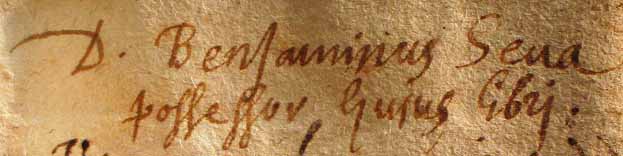 D. Benjaminus Seva
possessor hujus libri.